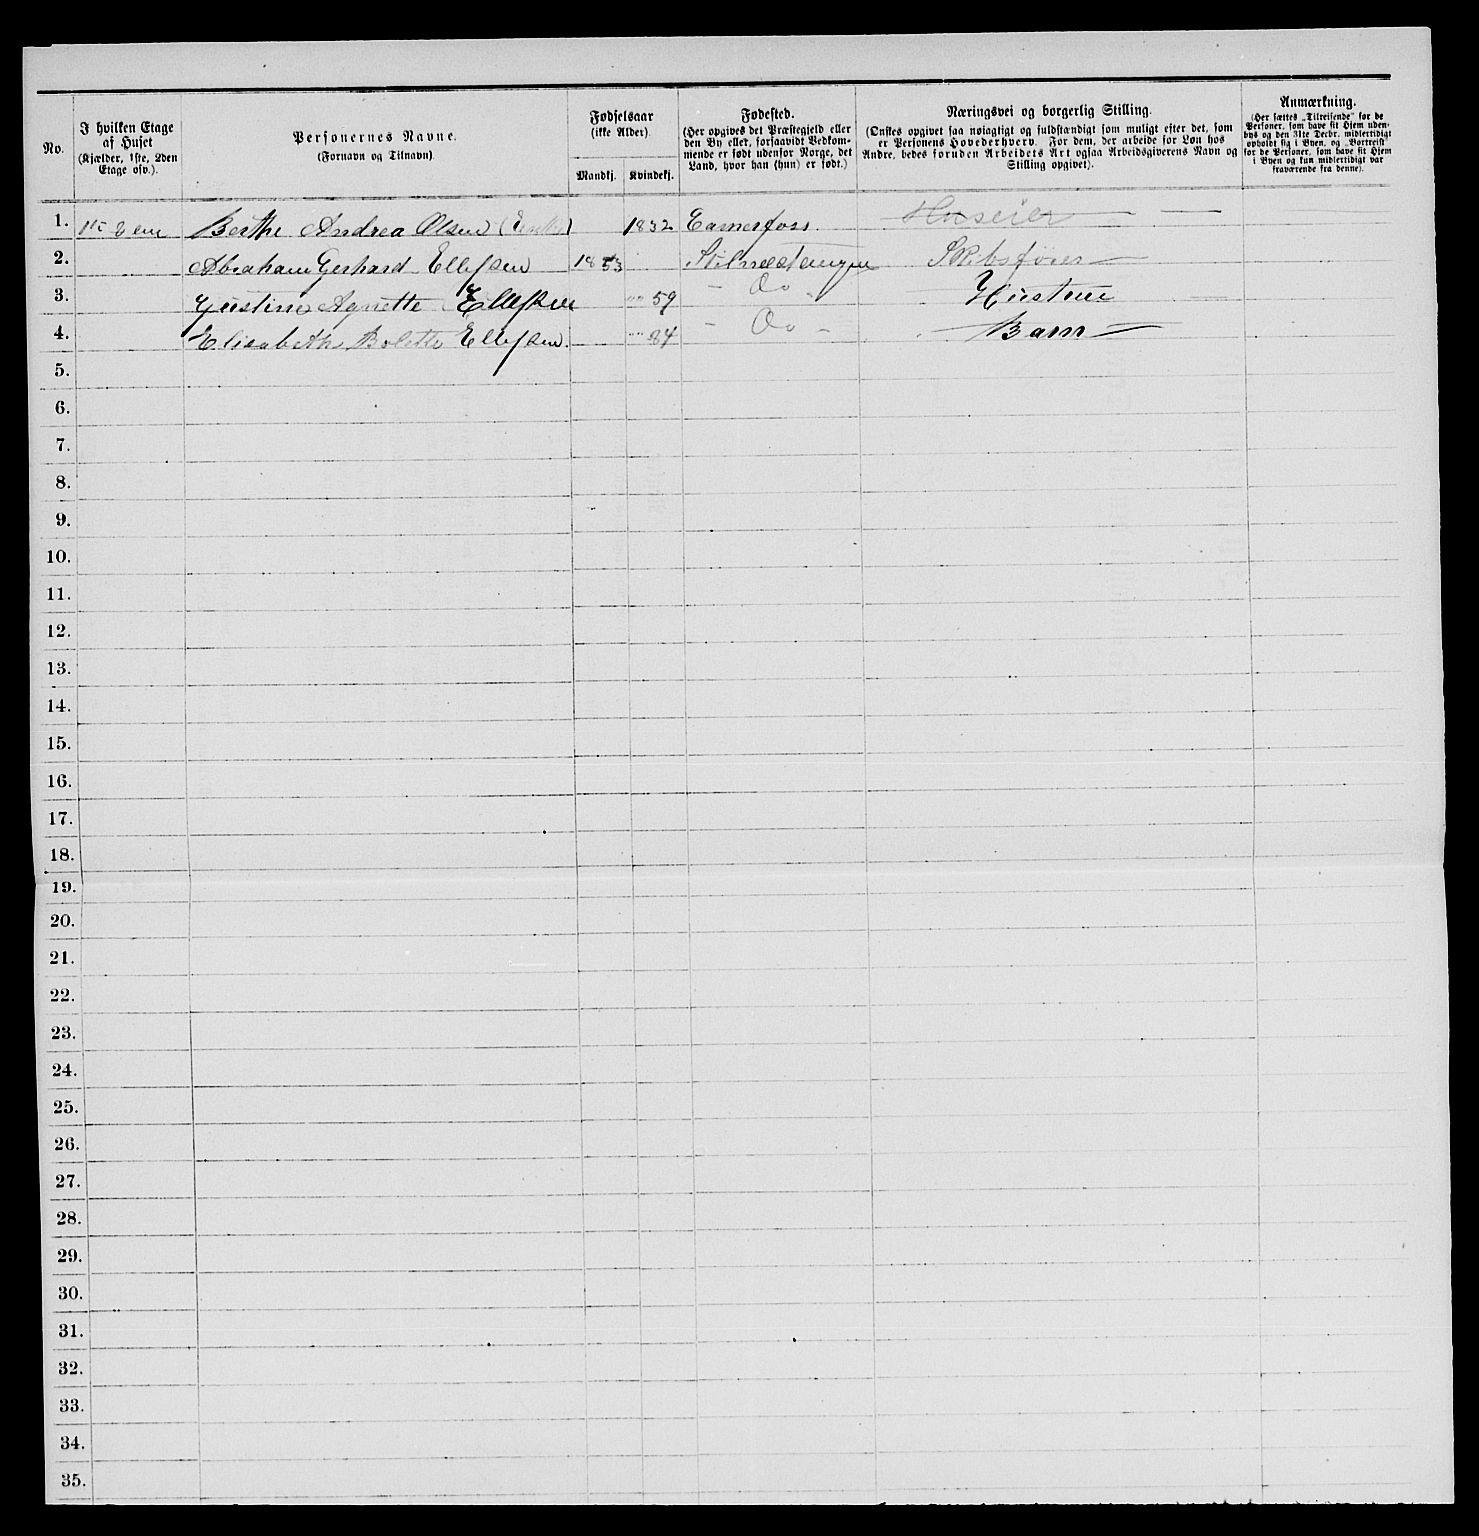 No.
I hvilken Etage
af Huset
(Kjælder, 1ste, 2den
Etage osv.).
Personernes Navne.
(Fornavn og Tilnavn).
Fødselsaar
(ikke Alder).
Mandkj. Kvindekj.
Fødested.
(Her opgives det Præstegjeld eller
den By eller, forsaavidt Vedkom-
mende er født udenfor Norge, det
Land, hvor han (hun) er født.)
Næringsvei og borgerlig Stilling.
(Ønskes opgivet saa nøiagtigt og fuldstændigt som muligt efter det, som
er Personens Hovederhverv. For dem, der arbeide for Løn hos
Andre, bedes foruden Arbeidets Art ogsaa Arbeidsgiverens Navn og
Stilling opgivet).
Anmærkning.
(Her sættes „Tilreisende" for de
Personer, som have sit Hjem uden-
bys og den 31te Decbr. midlertidigt
opholdt sig i Byen, og „Bortreist"
for de Personer, som have sit Hjem
i Byen og kun midlertidigt var
fraværende fra denne).
1. 1ste Berthe Andrea Olsen (Enke) 1832 Eamerfoss. Huseier
2. Abraham Gerhard Ellefsen 1853 Stilnæstangen Skibsfører
3. Gustine Agnette Ellefsen "" 59 - Do Hustrue
4. Elisabeth Bolette Ellefsen. "" 84 - Do - Barn
5.
6.
7.
8.
9.
10.
11.
12.
13.
14.
15.
16.
17.
18.
19.
20.
21.
22.
23.
24.
25.
26.
27.
28.
29.
30.
31.
32.
33.
34.
35.